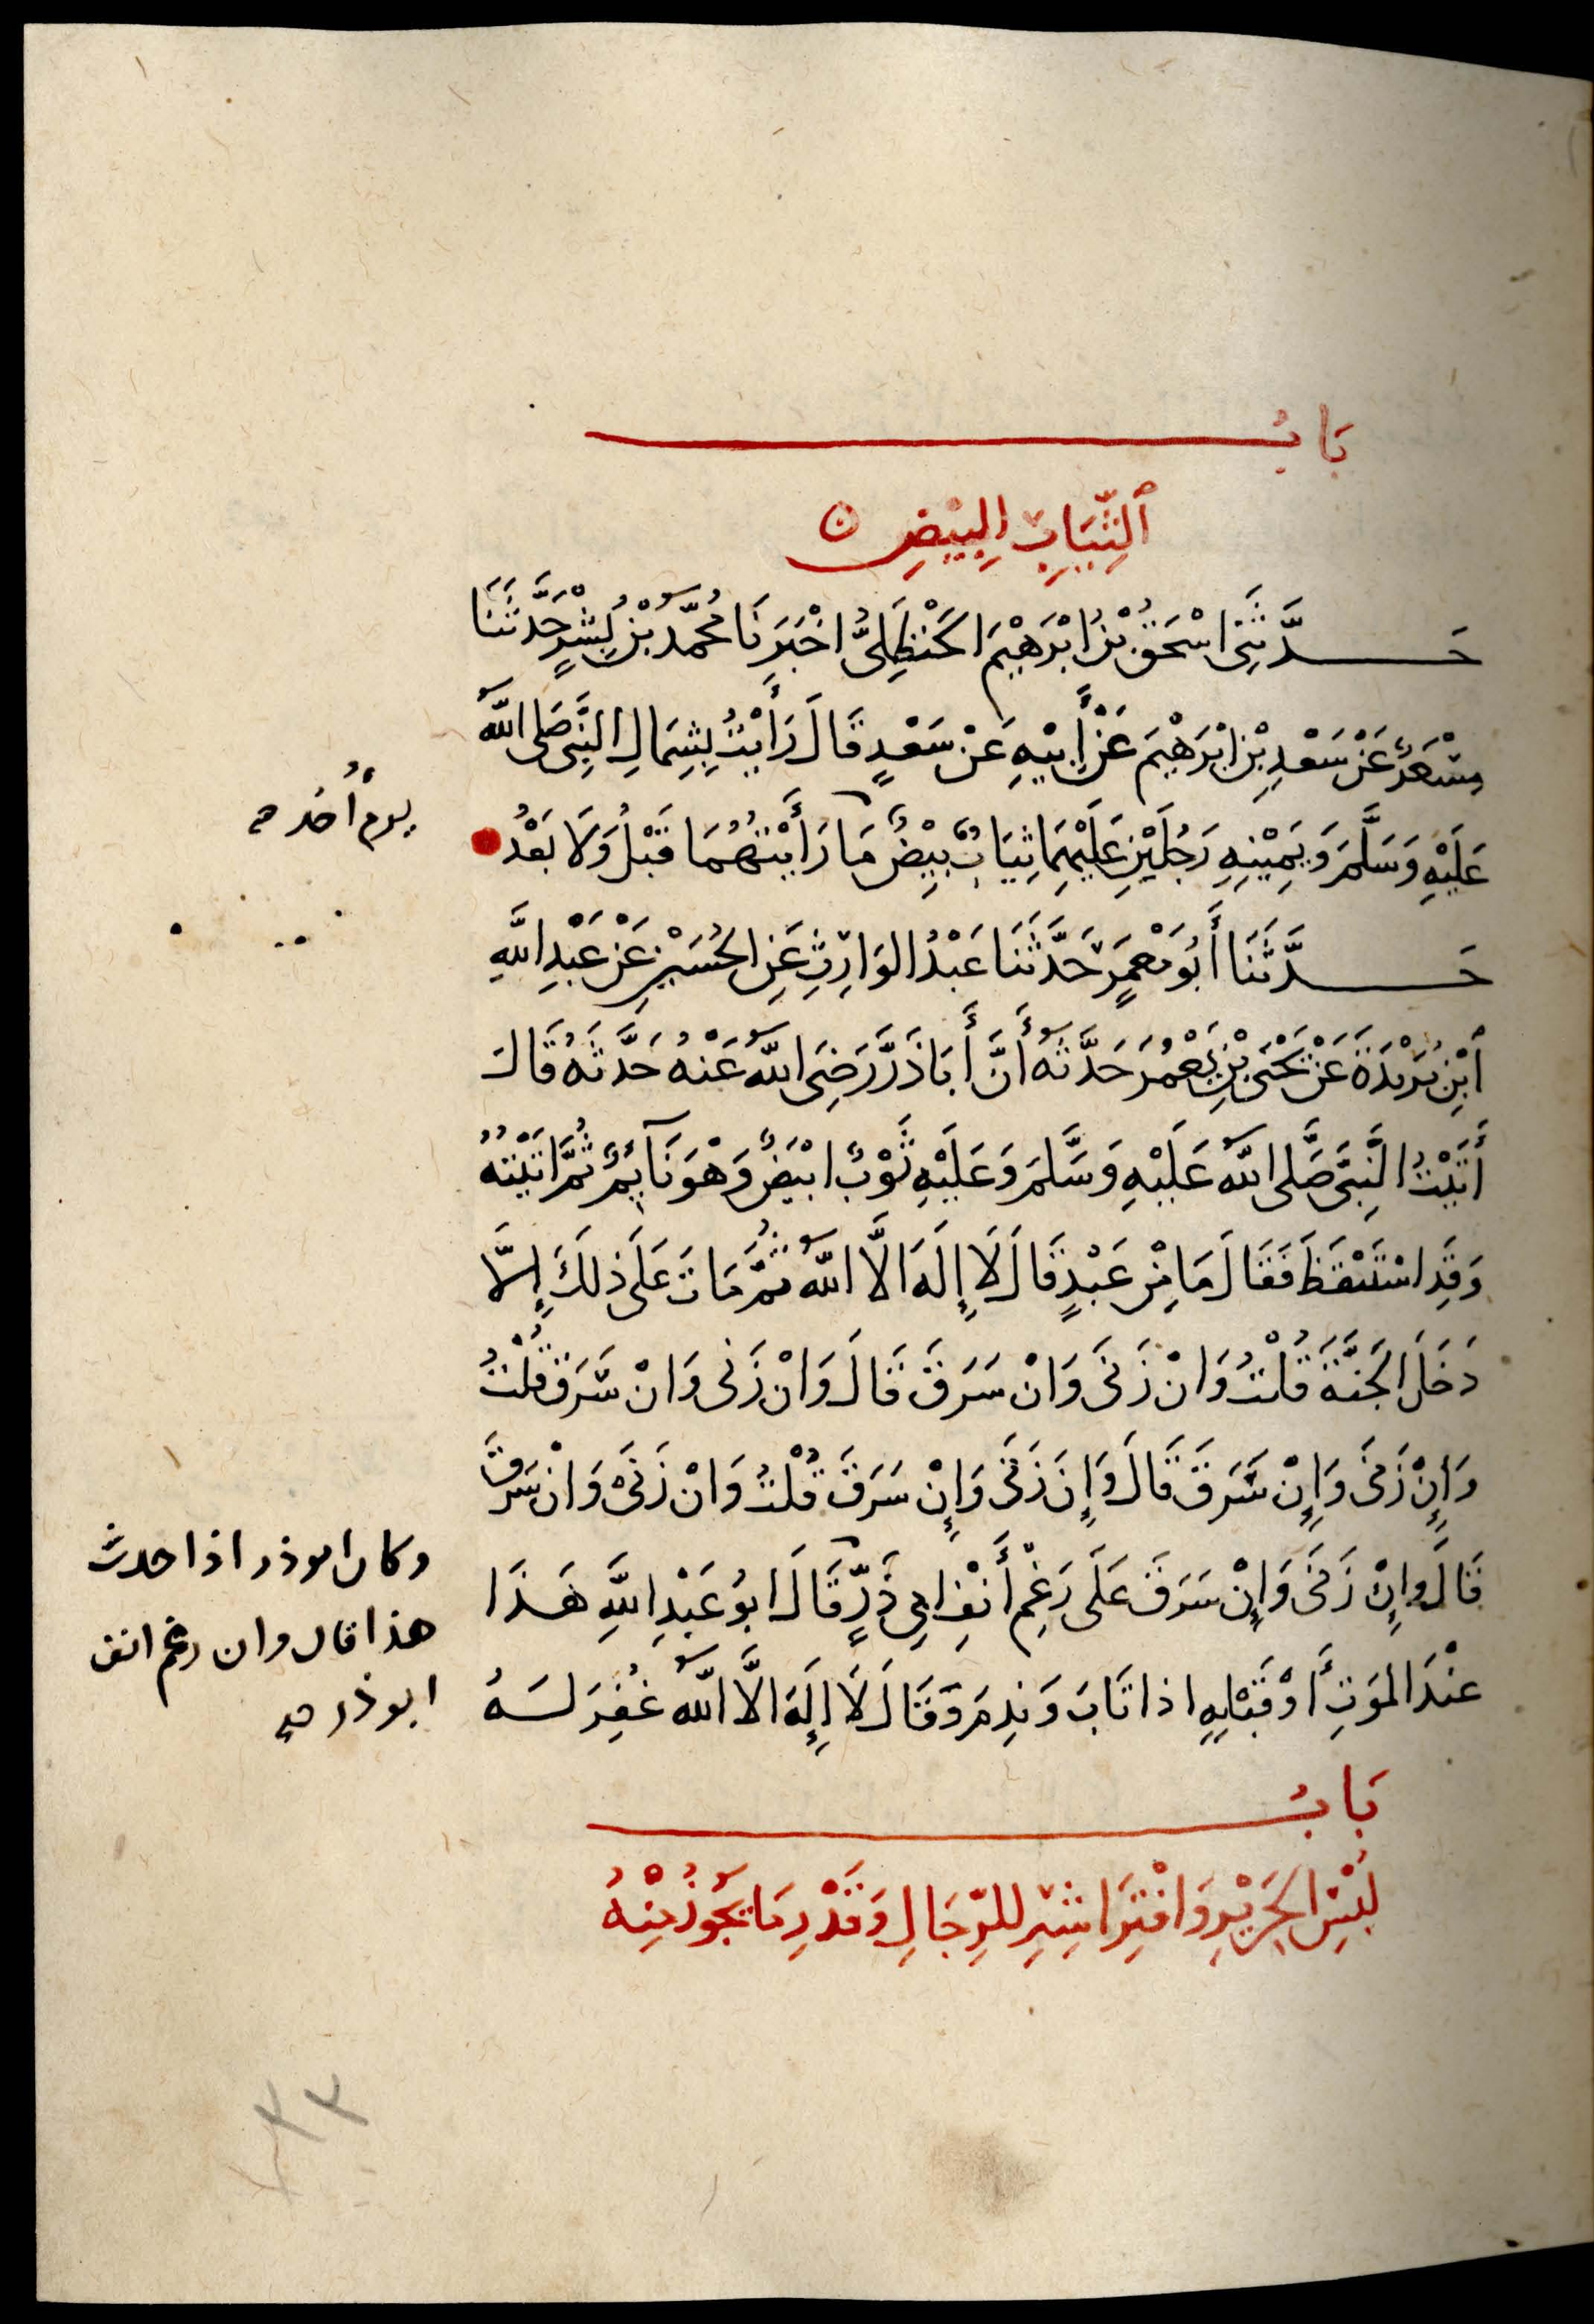 بَابُ
اَلثِّيَابِ الْبِيْضِ ن
حَدَّثَنِى اسْحَقُ بْنُ ابْرَهِيْمَ الحَنْظَلِىُّ اخْبَرَنَا مُحَمَّدُ بْنُ بِشْرٍ حَدَّثَنَا
مِسْعَرٌ عَنْ سَعْدِ بْنِ ابْرَهِيْمَ عَنْ أَبِيْهِ عَنْ سَعْدٍ قَالَ رَأَيْتُ بِشِمَالِ النَّبِى صَلى اللَّهُ
عَلَيْهِ وَسَلَّمَ وَيَمِيْنِهِ رَجُلَيْنِ عَلَيْهِمَا ثِيَابٌ بِيْضٌ مَا رَأَيْتُهُمَا قَبْلُ وَلَا بَعْدُ
يوم أُحُد صح
حَدَّثَنَا أَبُو مَعْمَرٍ حَدَّثَنَا عَبْدُ الوَارِثِ عَنِ الحُسَيْنِ عَنْ عَبْدِ اللَّهِ
ابْنِ بُرَيْدَةَ عَنْ يَحْيَى بْنِ يَعْمُرَ حَدَّثَهُ أَنَّ أَبَا ذَرَّ رَضِىَ اللَّهُ عَنْهُ حَدَّثَهُ قَالَ
أَتَيْتُ النَّبِىَّ صَلَّى اللَّهُ عَلَيْهِ وَسَلَّمَ وَعَلَيْهِ ثَوْبٌ ابْيَضٌ وَهْوَ نَآئِمٌ ثُمَّ اتَيْتهُ
وَقَدِ اسْتَيْقَظَ فَقَالَ مَا مِنْ عَبْدٍ قَالَ لَا إِلَهَ الَّا اللَّهُ ثُمَّ مَاتَ عَلَى ذلَكَ إِلَّا
دَخَلَ الجَنَّةَ قُلْتُ وَانْ زَنَى وَانْ سَرَقَ قَالَ وَانْ زَنى وَانْ سَّرَقَ قُلْتُ
وَإِنْ زَنَى وَإِنْ سَرَقَ قَالَ وَإِن زَنَى وَإِنْ سَرَقَ قُلْتُ وَانْ زَنَى وَانْ سَرَقَ
قَالَ وإِنْ زَنَى وَإِنْ سَرَقَ عَلَى رَغِمِ أَنْفِ ابِى ذَرٍّ قَالَ ابُو عَبْدِ اللَّهِ هَذَا
عنْدَ الموَتِ أَوْ قَبْلِهِ اذا تَابَ وَنِدمَ وَقَالَ لَا إِلَهَ الَّا اللَّهُ غُفِرَ لَهُ
وكان ابو ذر اذا حدث
هذا قال وان رغم انف
ابو ذر صح
بَابُ
لُبْسِ الحَرِيْرِ وَافْتِرَاشِهِ للرِّجَالِ وَقَدْرِ مَا يَجُوزُ مِنْهُ